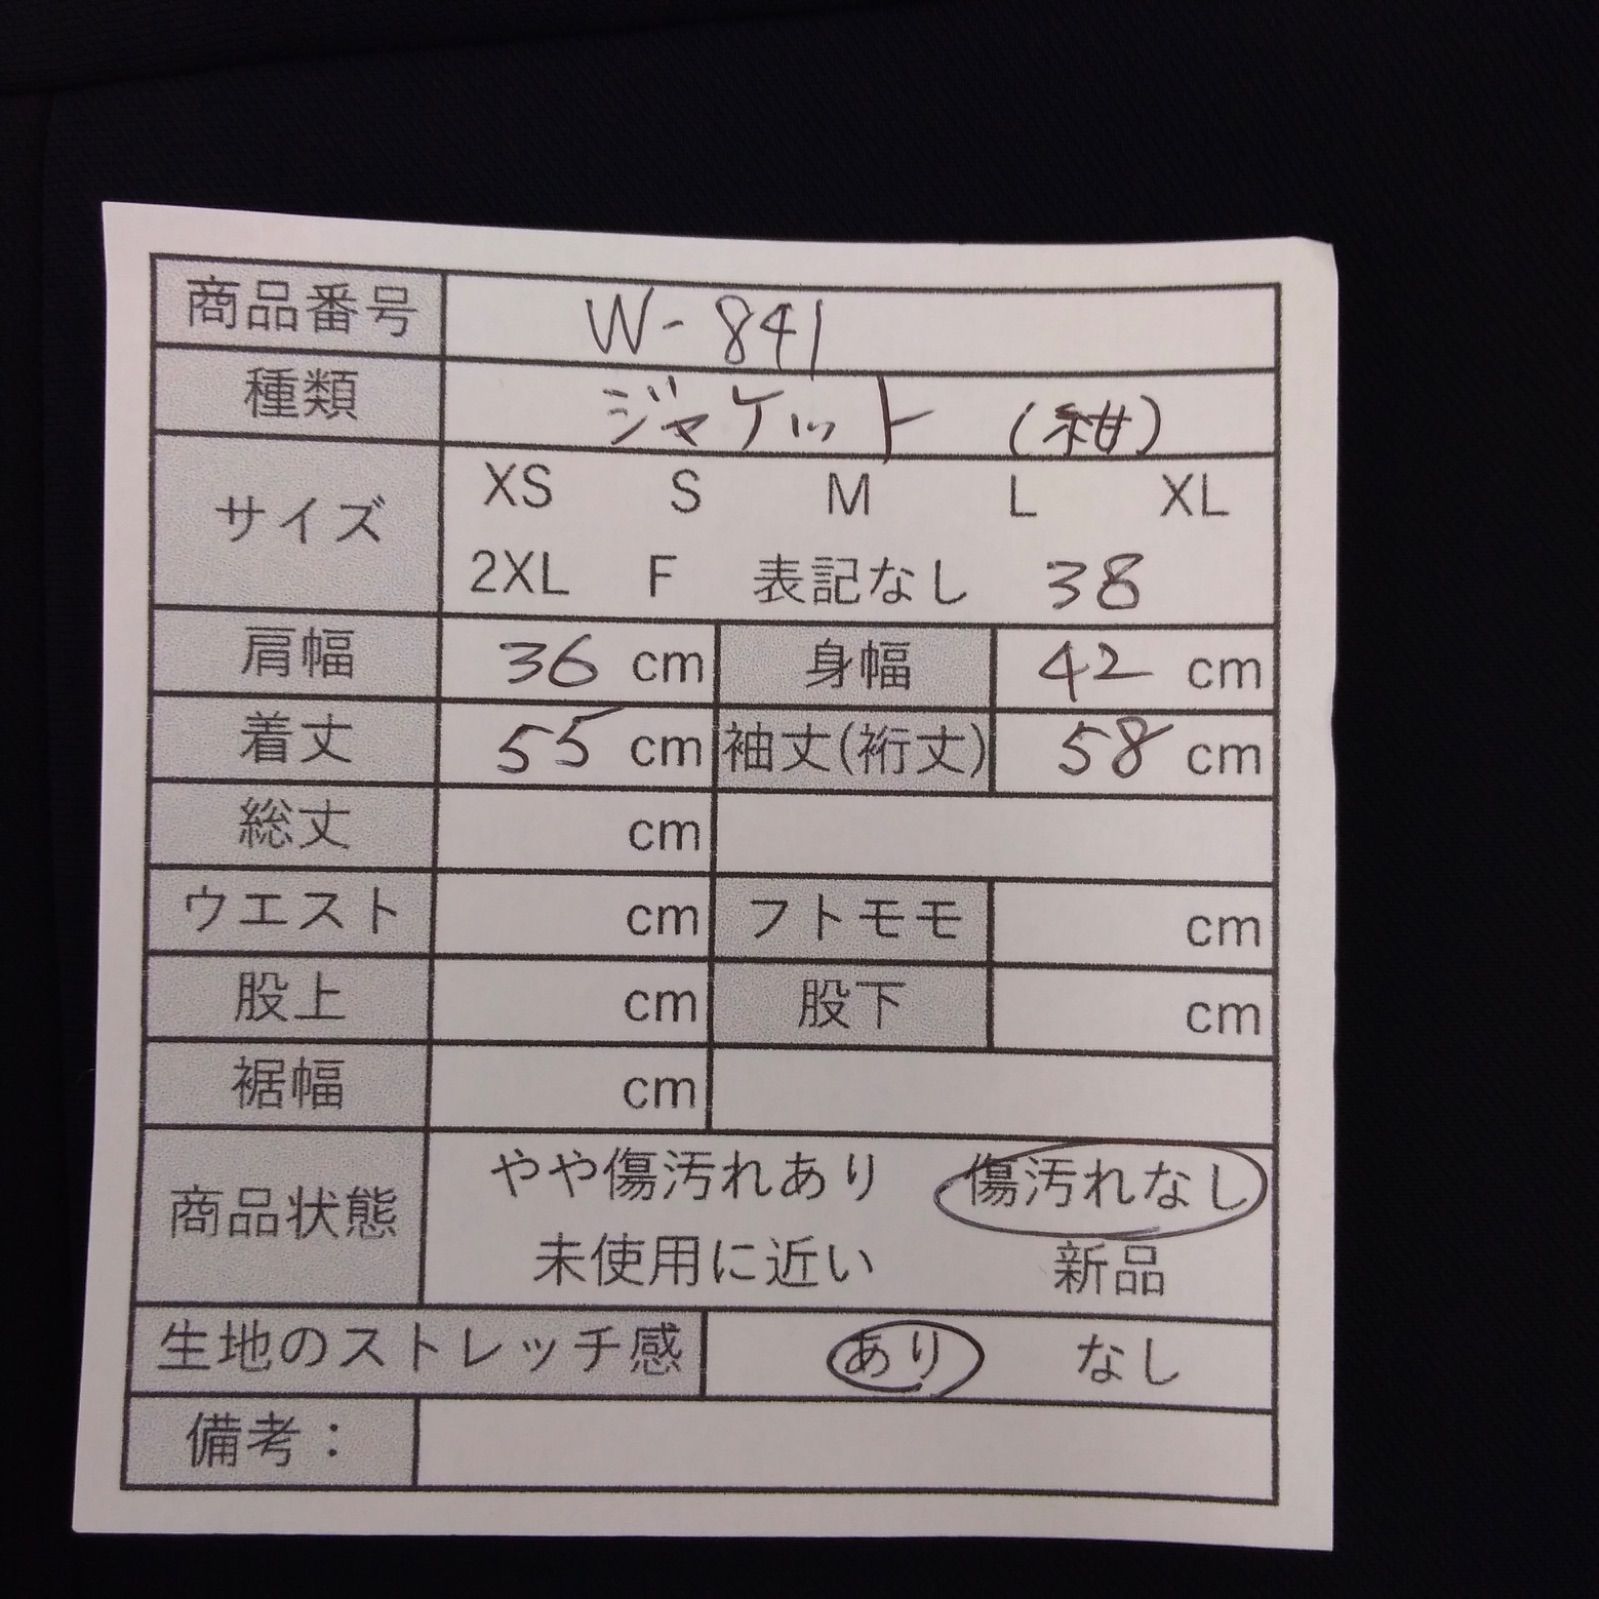 商品番号 W-841
種類 ジャケット (紺)
サイズ XS S M L XL
2XL F 表記なし 38
肩幅 36 cm 身幅 42 cm
着丈 55 cm 袖丈(裄丈) 58 cm
総丈 cm
ウエスト cm フトモモ cm
股上 cm 股下 cm
裾幅 cm
商品状態 やや傷汚れあり 傷汚れなし
未使用に近い 新品
生地のストレッチ感 あり なし
備考：